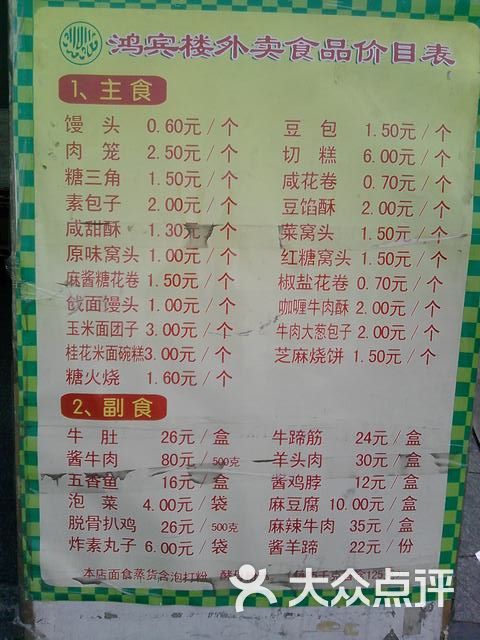 鸿宾楼外卖食品价目表
1、主食
馒头 0.60元/个 豆包 1.50元/个
肉笼 2.50元/个 切糕 6.00元/个
糖三角 1.50元/个 咸花卷 0.70元/个
素包子 2.00元/个 豆馅酥 2.00元/个
咸甜酥 1.30元/个 菜窝头 1.50元/个
原味窝头 1.00元/个 红糖窝头 1.50元/个
麻酱糖花卷 1.50元/个 椒盐花卷 0.70元/个
戗面馒头 1.00元/个 咖喱牛肉酥 2.00元/个
玉米面团子 3.00元/个 牛肉大葱包子 2.00元/个
桂花米面碗糕3.00元/个 芝麻烧饼 1.50元/个
糖火烧 1.60元/个
2、副食
牛肚 26元/盒 牛蹄筋 24元/盒
酱牛肉 80元/500克 羊头肉 30元/盒
五香鱼 16元/盒 酱鸡脖 12元/盒
泡菜 4.00元/袋 麻豆腐 10.00元/盒
脱骨扒鸡 26元/500克 麻辣牛肉 35元/盒
炸素丸子 6.00元/袋 酱羊蹄 22元/份
本店面食蒸货含泡打粉
大众点评